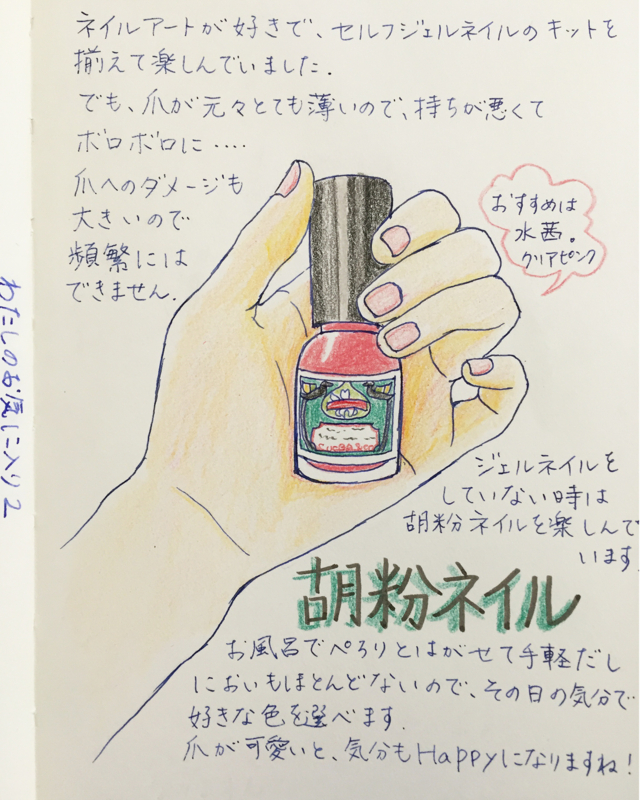 ネイルアートが好きで、セルフジェルネイルのキットを
揃えて楽しんでいました.
でも、爪が元々とても薄いので、持ちが悪くて
ボロボロに‥‥
爪へのダメージも
大きいので
頻繁には
できません.
おすすめは
水茜。
クリアピンク
わたしのお気に入り2
ジェルネイルを
していない時は
胡粉ネイルを楽しんで
います
胡粉ネイル
お風呂でぺろりとはがせて手軽だし
においもほとんどないので、その日の気分で
好きな色を選べます.
爪が可愛いと、気分もHappyになりますね!